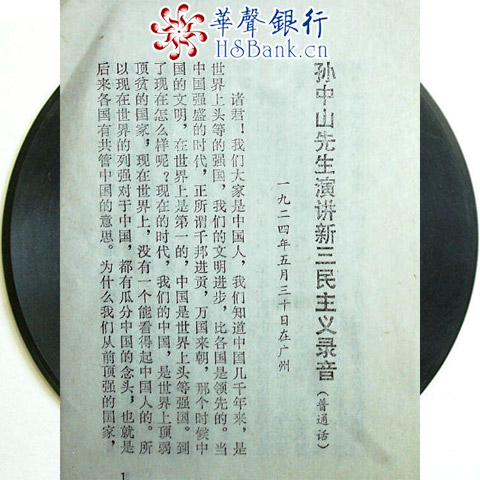 華聲銀行
HSBank.cn
孙中山先生演讲新三民主义录音(普通话)
一九二四年五月三十日在广州
诸君!我们大家是中国人,我们知道中国几千年来,是
世界上头等的强国,我们的文明进步,比各国是领先的。当
中国强盛的时代,正所谓千邦进贡,万国来朝,那个时候中
国的文明,在世界上是第一的,中国是世界上头等强国。到
了现在怎么样呢?现在的时代,我们的中国,是世界上顶弱
顶贫的国家,现在世界上,没有一个能看得起中国人的。所
以现在世界的列强对于中国,都有瓜分中国的念头,也就是
后来各国有共管中国的意思。为什么我们从前顶强的国家,
1